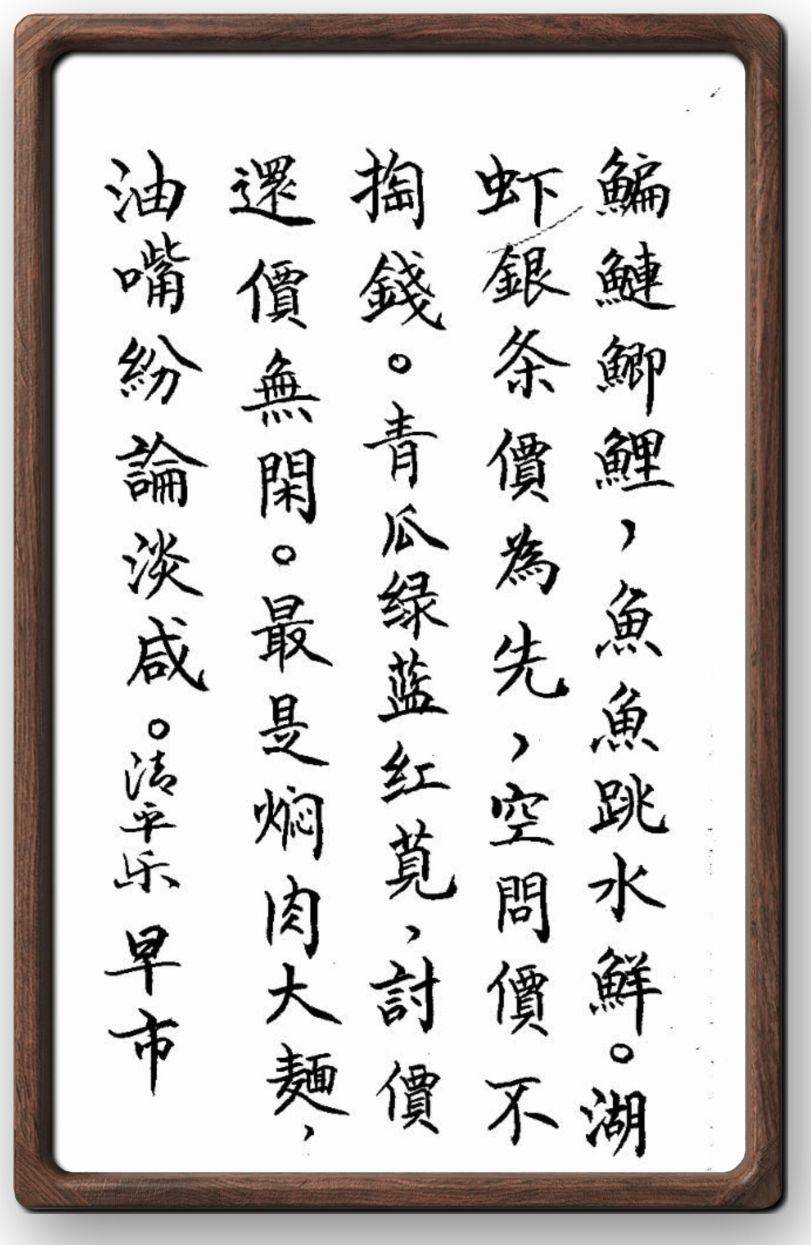 鯿鰱鯽鯉，魚魚跳水鮮。湖
虾銀条價為先，空問價不
掏錢。青瓜绿蓝红苋，討價
還價無閑。最是焖肉大麵，
油嘴紛論淡咸。清平乐早市